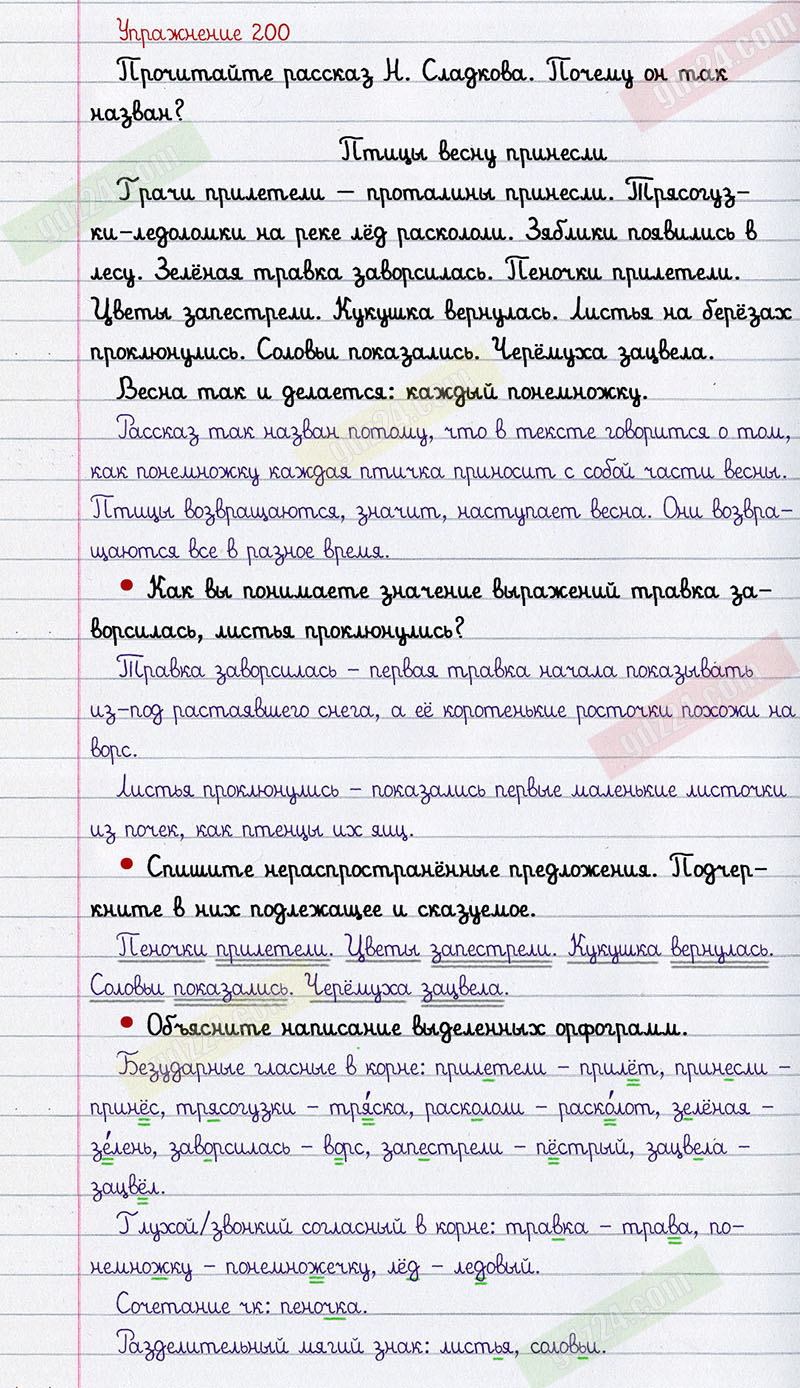 Упражнение 200
Прочитайте рассказ Н. Сладкова. Почему он так
назван?
Птицы весну принесли
Грачи прилетели – проталины принесли. Трясогуз-
ки-ледоломки на реке лёд раскололи. Зяблики появились в
лесу. Зелёная травка заворсилась. Пеночки прилетели.
Цветы запестрели. Кукушка вернулась. Листья на берёзах
проклюнулись. Соловьи показались. Черёмуха зацвела.
Весна так и делается: каждый понемножку.
Рассказ так назван потому, что в тексте говорится о том,
как понемножку каждая птичка приносит с собой части весны.
Птицы возвращаются, значит, наступает весна. Они возвра-
щаются все в разное время.
• Как вы понимаете значение выражений травка за-
ворсилась, листья проклюнулись?
Травка заворсилась – первая травка начала показывать
из-под растаявшего снега, а её коротенькие росточки похожи на
ворс.
Листья проклюнулись – показались первые маленькие листочки
из почек, как птенцы их яиц.
• Спишите нераспространённые предложения. Подчер-
кните в них подлежащее и сказуемое.
Пеночки прилетели. Цветы запестрели. Кукушка вернулась.
Соловьи показались. Черёмуха зацвела.
• Объясните написание выделенных орфограмм.
Безударные гласные в корне: прилетели – прилёт, принесли –
принёс, трясогузки – тря́ска, раскололи – раско́лот, зелёная –
зе́лень, заворсилась – ворс, запестрели – пёстрый, зацвела –
зацвёл.
Глухой/звонкий согласный в корне: травка – трава, по-
немножку – понемножечку, лёд – ледовый.
Сочетание чк: пеночка.
Разделительный мягий знак: листья, соловьи.
gdz24.com
gdz24.com
gdz24.com
gdz24.com
gdz24.com
gdz24.com